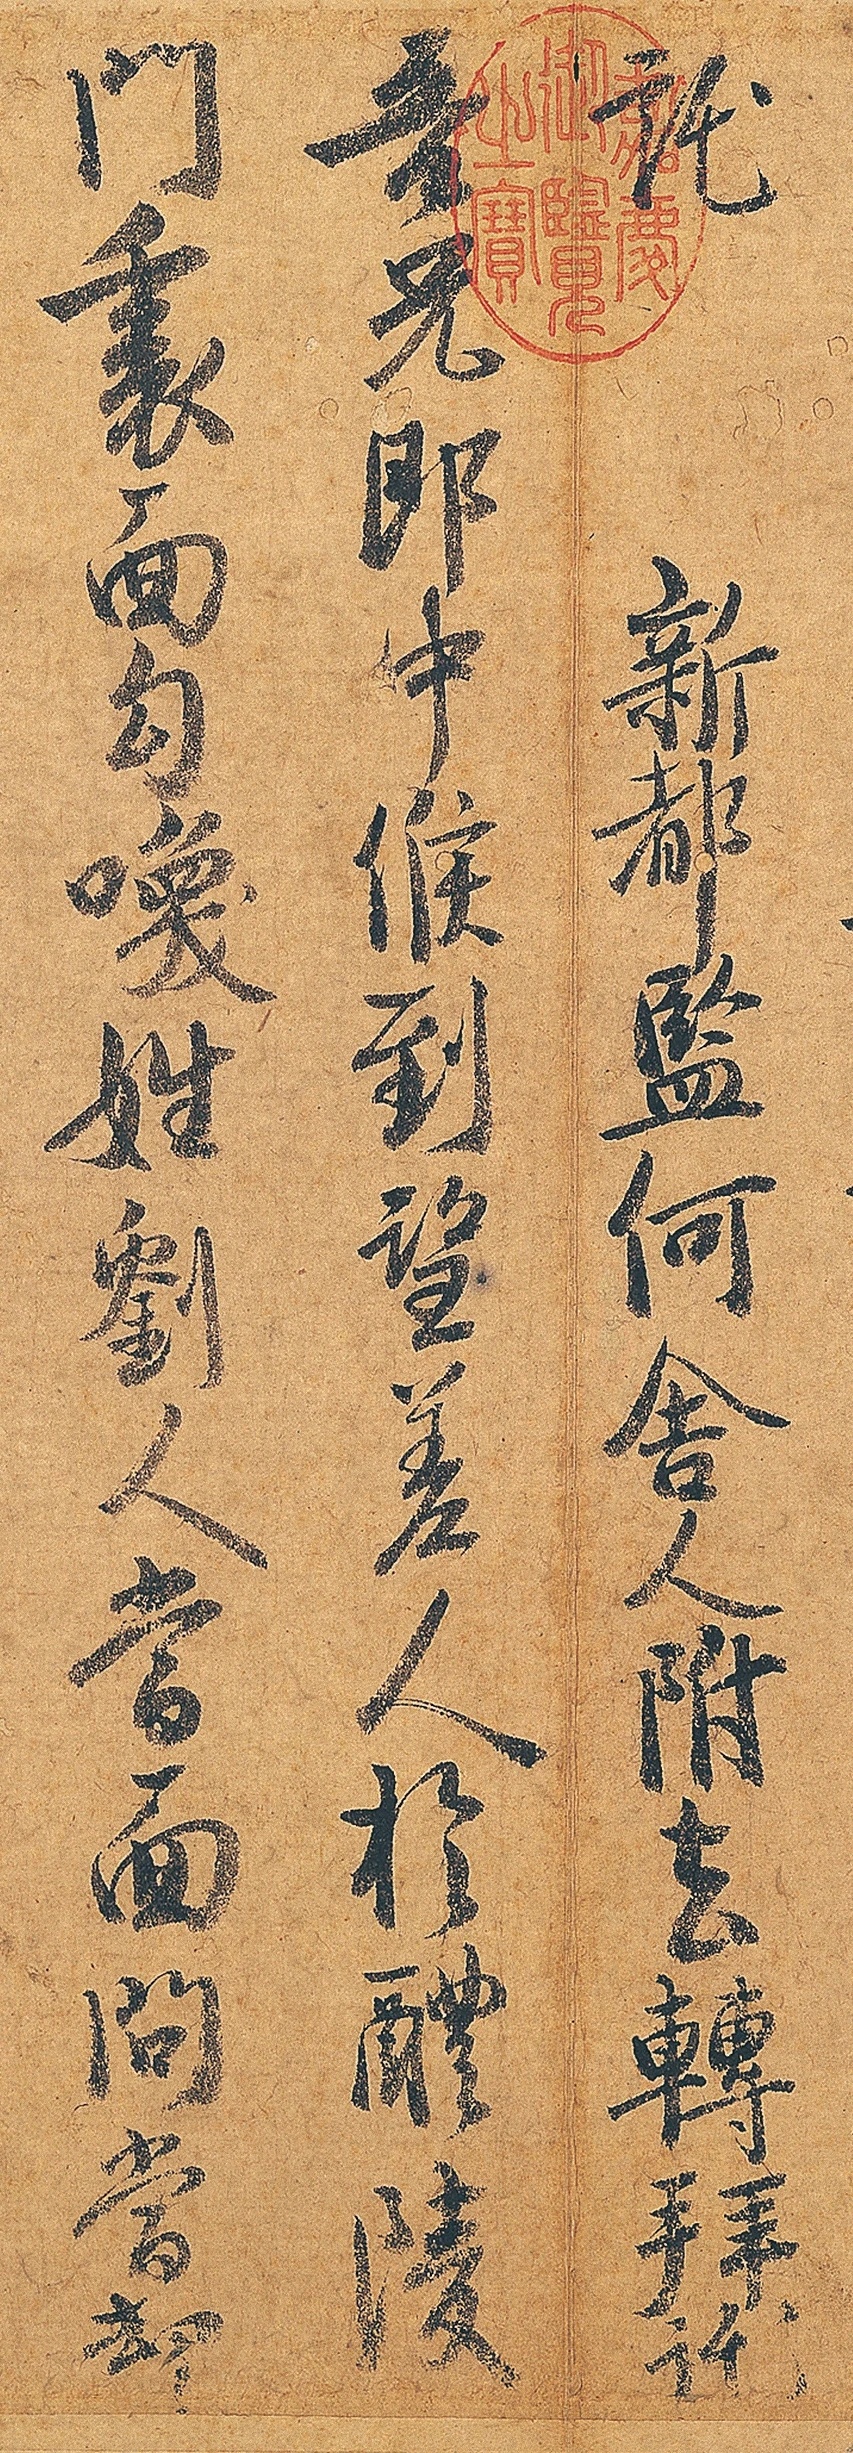 託　新都監何舍人附去轉拜託
吾兄郎中候到望差人於醴陵
門裏面勾喚姓劉人當面問當却
嘉慶御覽之寶